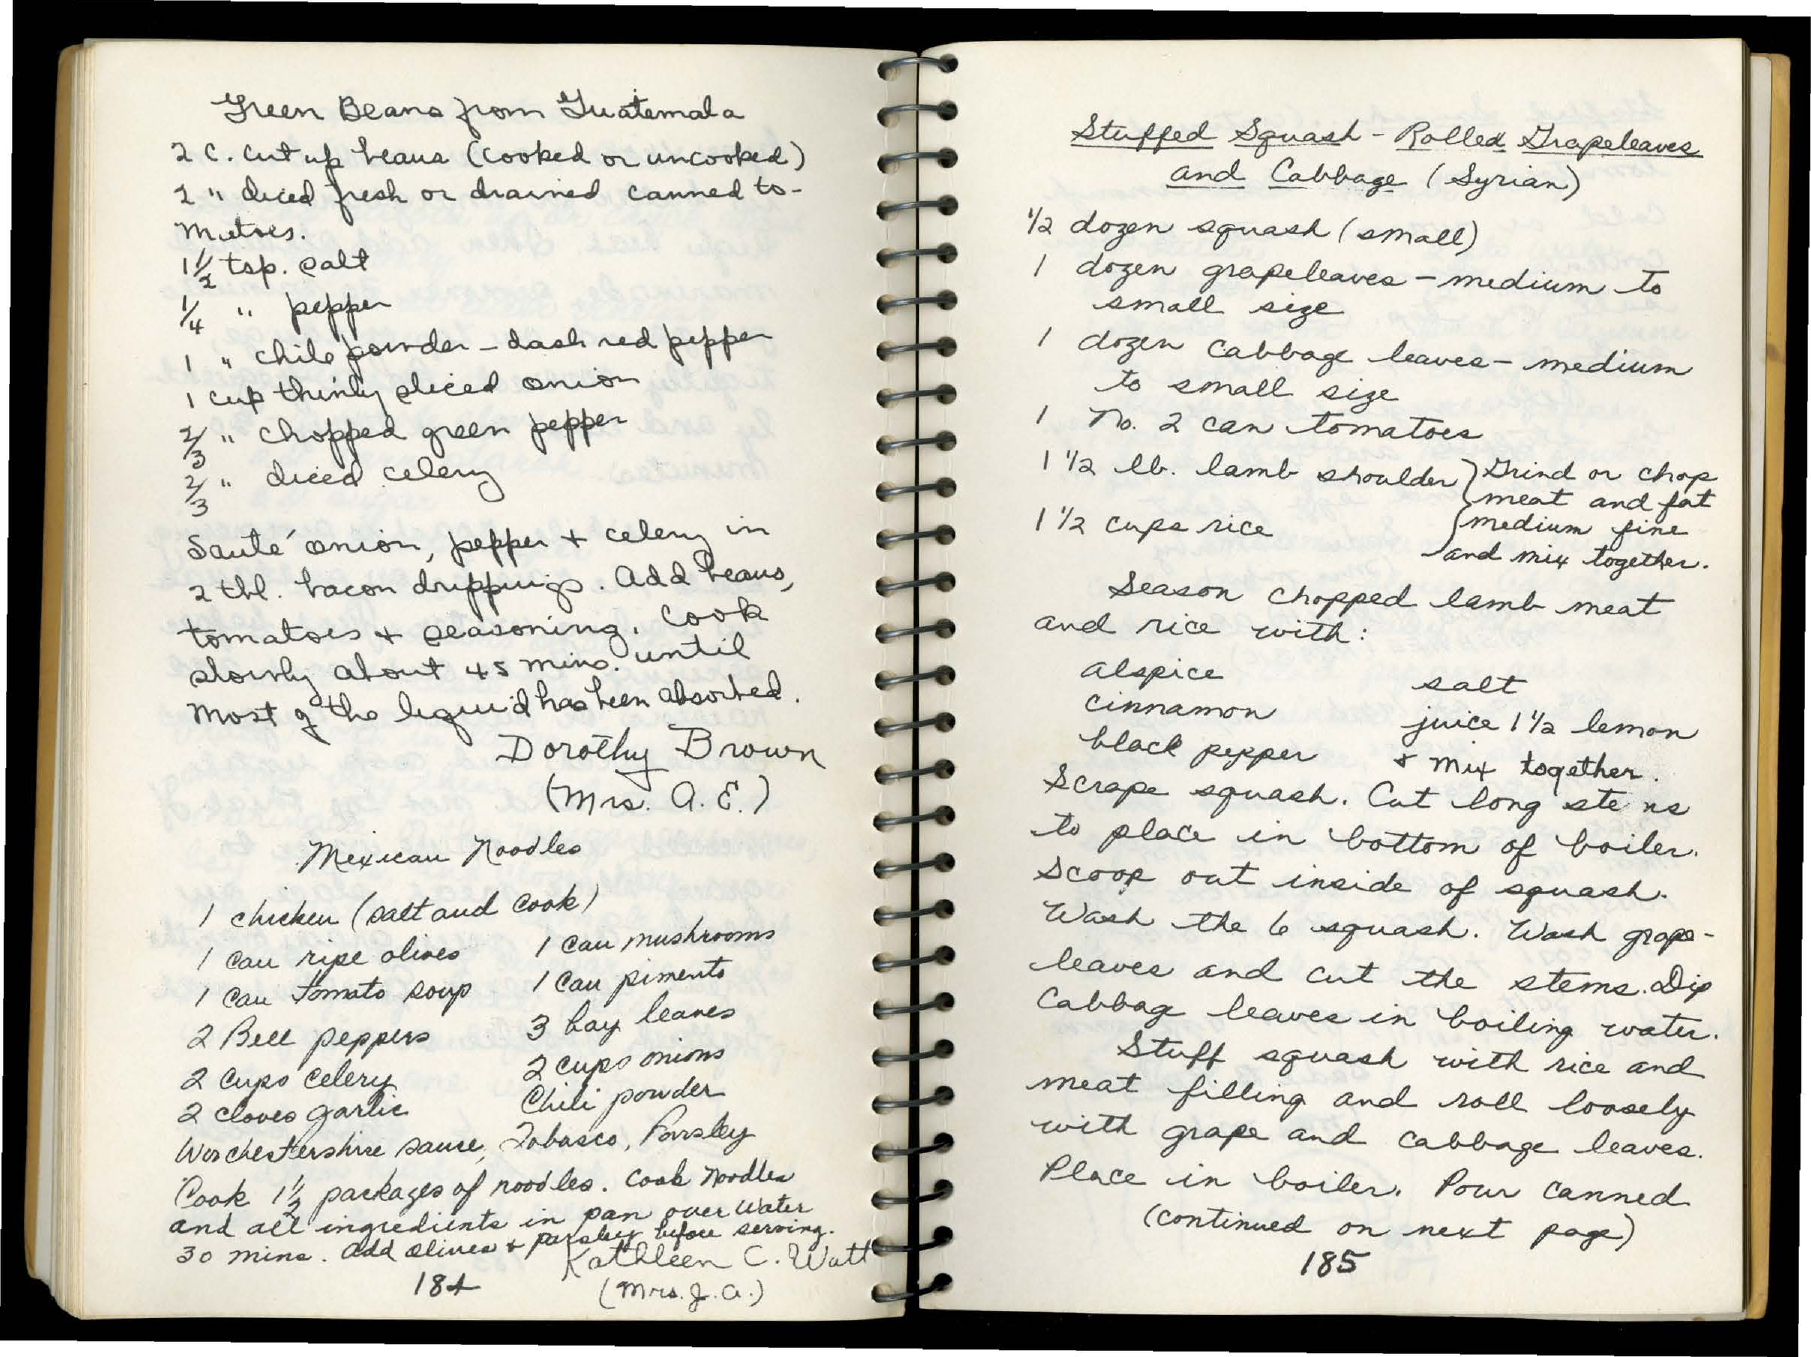 Green Beans from Guatemala
2 C. cut up beans (cooked or uncooked)
2 " diced fresh or drained canned to-
matoes.
1 1/2 tsp. salt
1/4 " pepper
1 " chile powder - dash red pepper
1 cup thinly sliced onion
2/3 " chopped green pepper
2/3 " diced celery
Sauté onion, pepper + celery in
2 tbl. bacon drippings. Add beans,
tomatoes + seasoning. Cook
slowly about 45 mins. until
most of the liquid has been absorbed.
Dorothy Brown
(Mrs. A. E.)
Mexican Noodles
1 chicken (salt and cook)
1 can ripe olives 1 can mushrooms
1 can tomato soup 1 can pimento
2 Bell peppers 3 bay leaves
2 cups celery 2 cups onions
2 cloves garlic Chili powder
Worchestershire sauce, Tobasco, Parsley
Cook 1 1/2 packages of noodles. Cook noodles
and all ingredients in pan over water
30 mins. Add olives + parsley before serving.
Kathleen C. Watt
(Mrs. J. A.)
184
Stuffed Squash - Rolled Grapeleaves
and Cabbage (Syrian)
1/2 dozen squash (small)
1 dozen grapeleaves - medium to
small size
1 dozen cabbage leaves - medium
to small size
1 No. 2 can tomatoes
1 1/2 lb. lamb shoulder } Grind or chop
meat and fat
1 1/2 cups rice medium fine
and mix together.
Season chopped lamb meat
and rice with:
alspice salt
cinnamon juice 1 1/2 lemon
black pepper + mix together.
Scrape squash. Cut long stems
to place in bottom of boiler.
Scoop out inside of squash.
Wash the 6 squash. Wash grape-
leaves and cut the stems. Dip
cabbage leaves in boiling water.
Stuff squash with rice and
meat filling and roll loosely
with grape and cabbage leaves.
Place in boiler. Pour canned
(continued on next page)
185